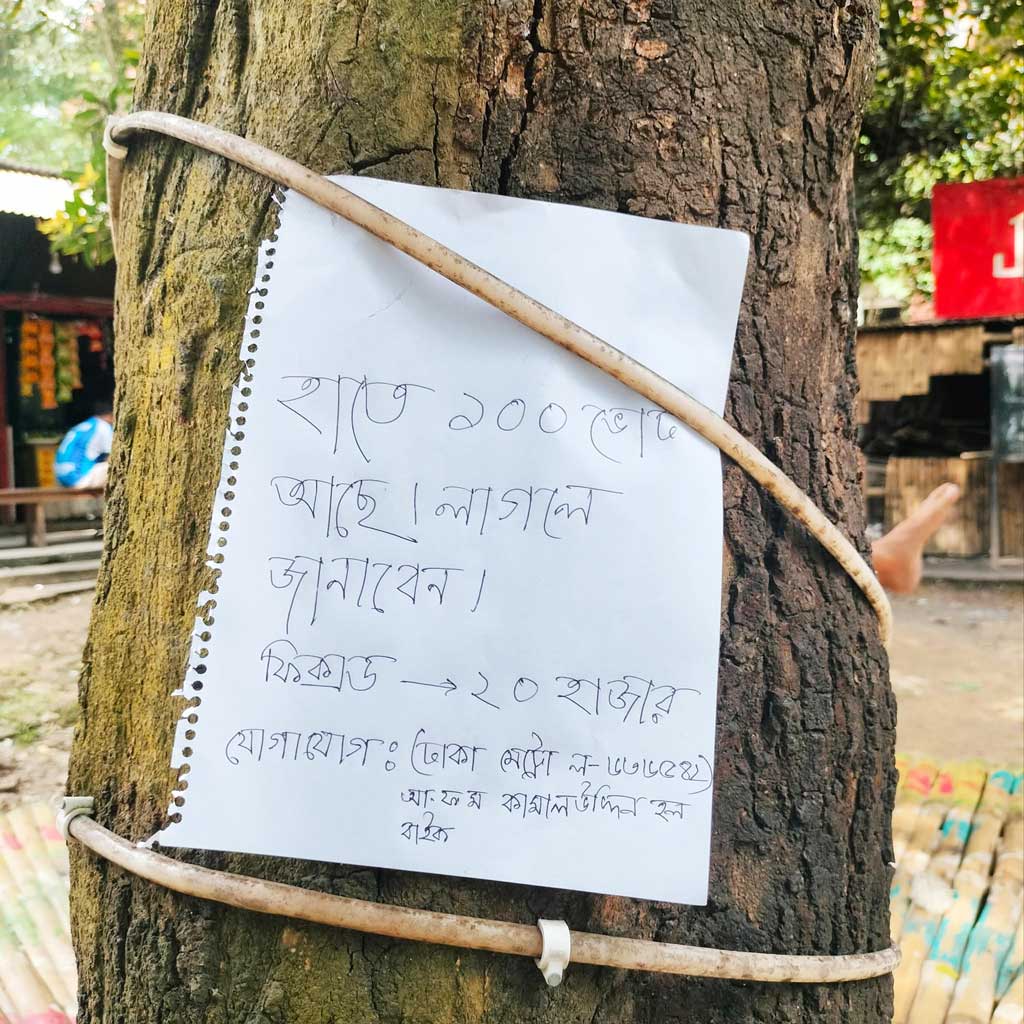 হাতে ১০০ ভোট
আছে। লাগলে
জানাবেন।
ফিক্সড → ২০ হাজার
যোগাযোগ: ঢাকা মেট্রো ল-৬৩৬৫৪২
আ.ফ.ম কামালউদ্দিন হল
বাইক
J